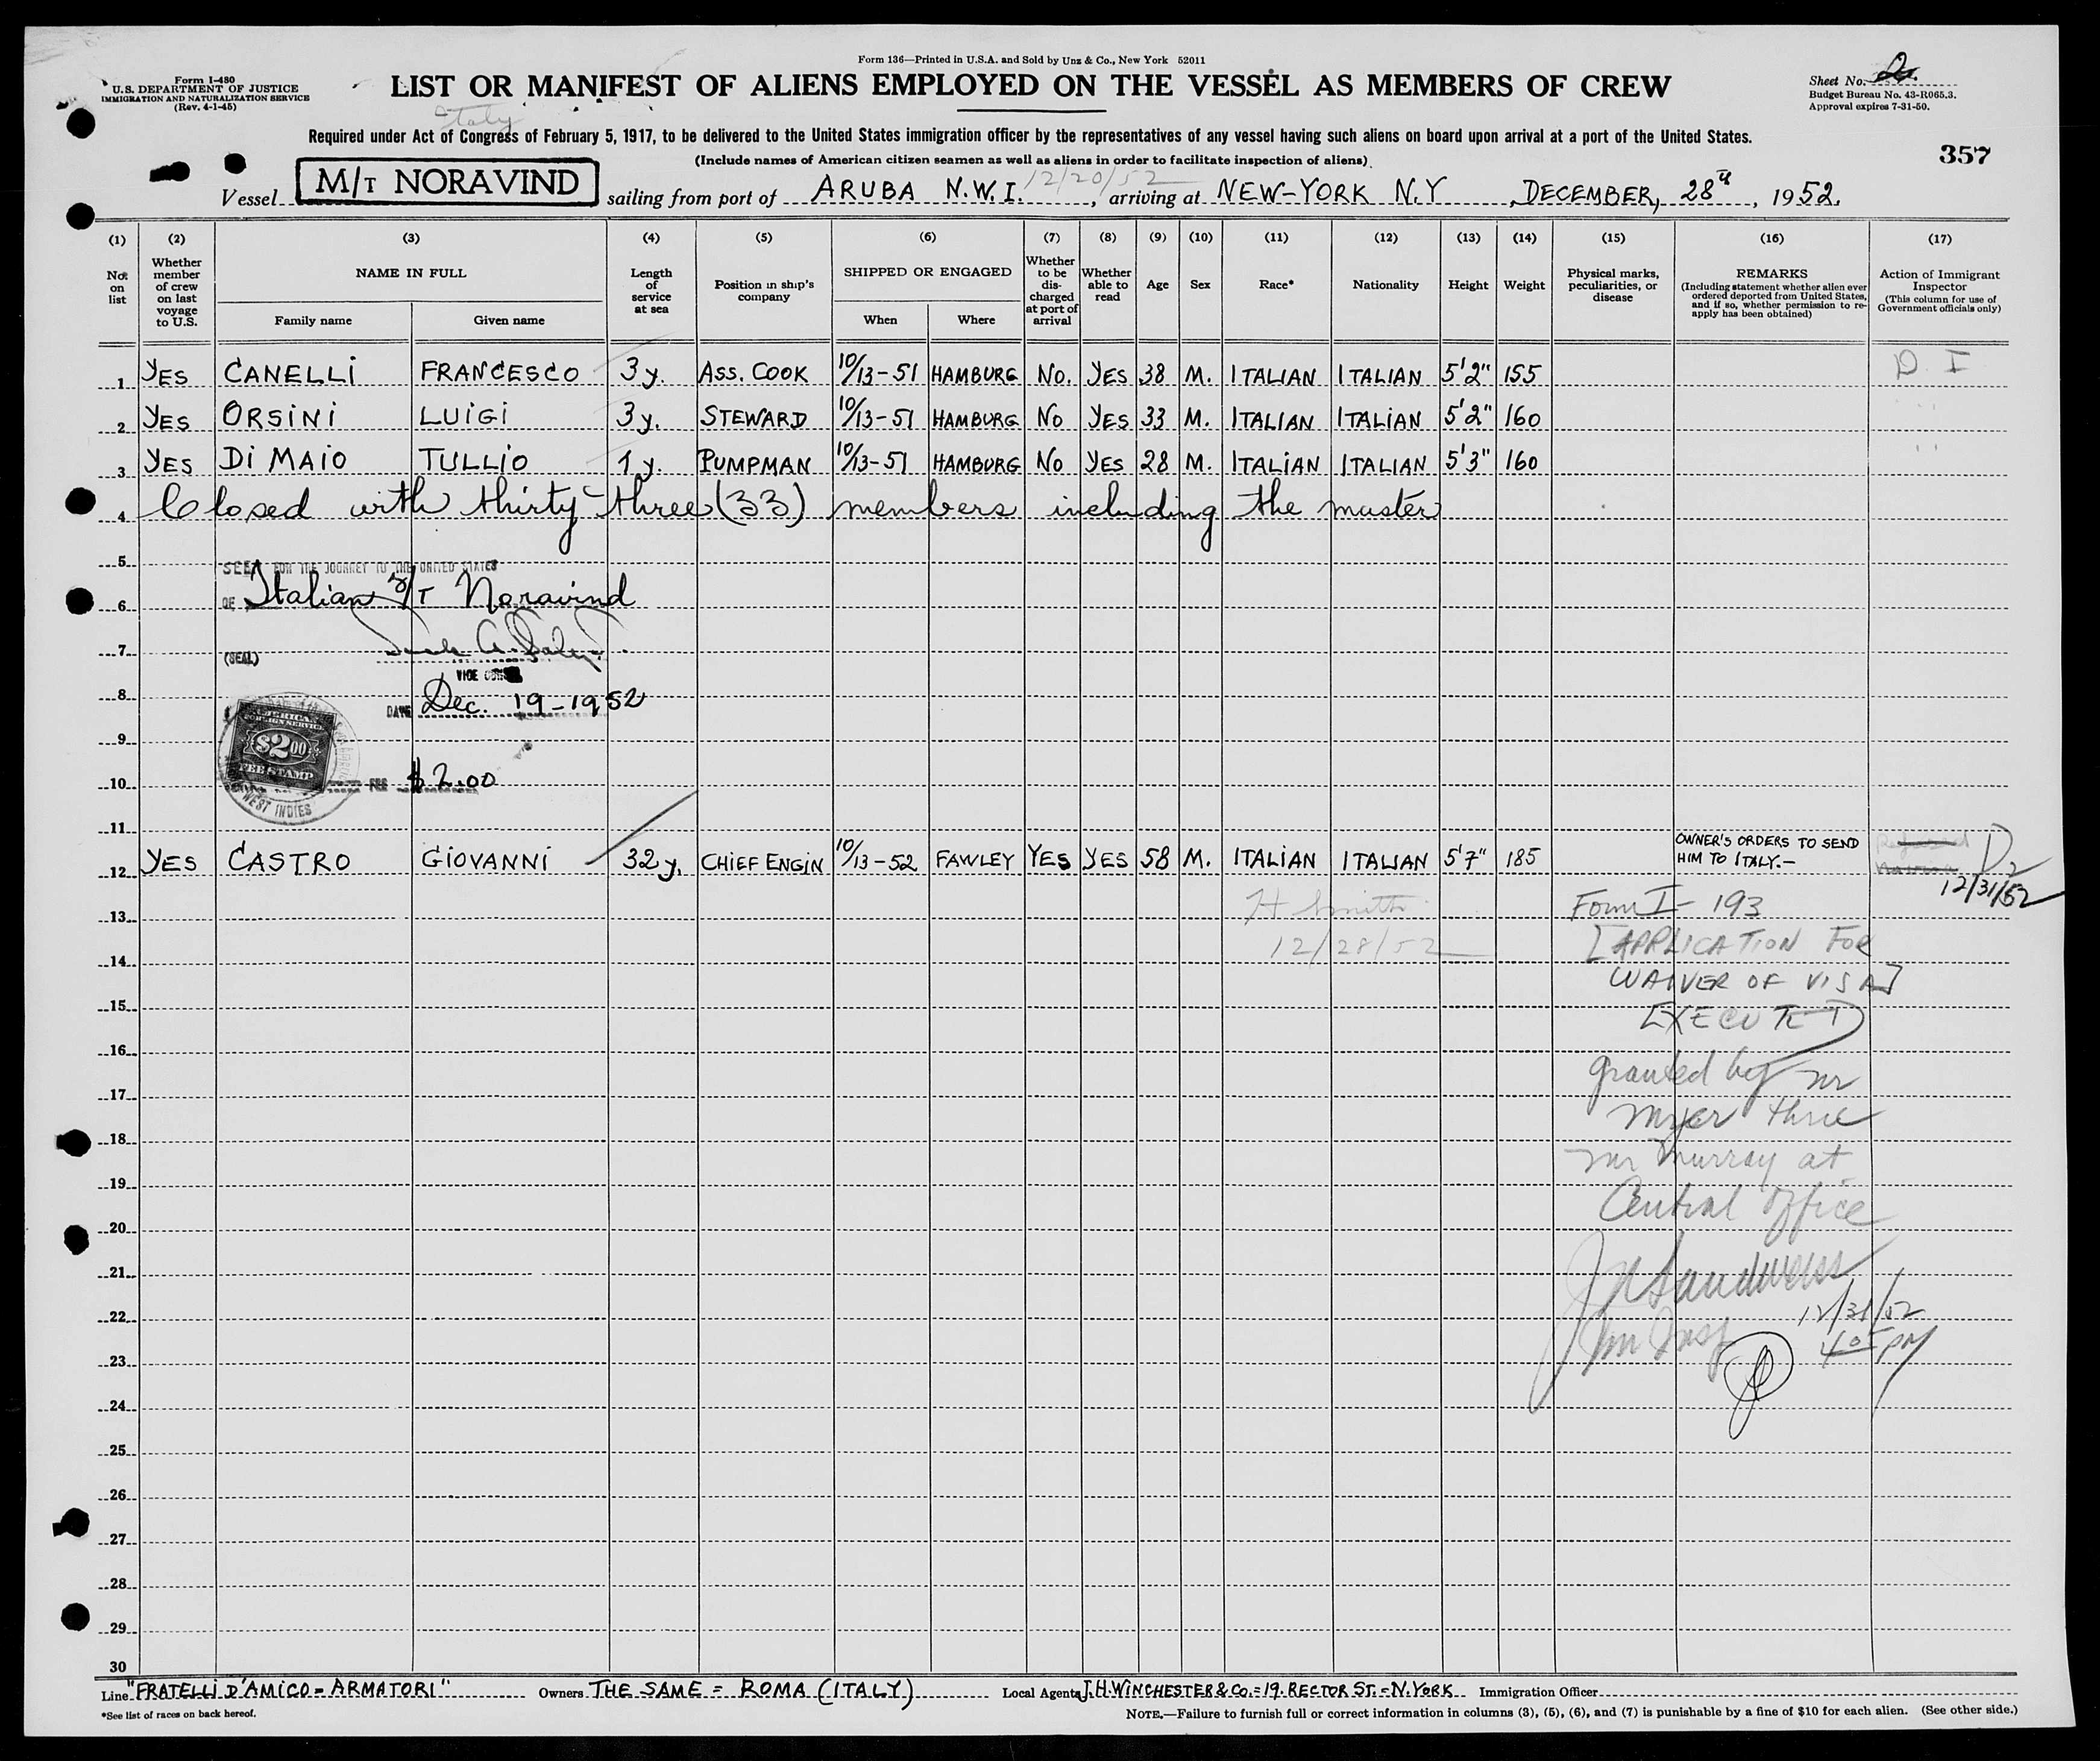 Form 136—Printed in U.S.A. and Sold by Unz & Co., New York 52011
Form I-480
U.S. DEPARTMENT OF JUSTICE
IMMIGRATION AND NATURALIZATION SERVICE
(Rev. 4-1-45)
LIST OR MANIFEST OF ALIENS EMPLOYED ON THE VESSEL AS MEMBERS OF CREW
Sheet No. 2.
Budget Bureau No. 43-R065.3.
Approval expires 7-31-50.
Italy
Required under Act of Congress of February 5, 1917, to be delivered to the United States immigration officer by the representatives of any vessel having such aliens on board upon arrival at a port of the United States.
(Include names of American citizen seamen as well as aliens in order to facilitate inspection of aliens)
357
Vessel M/T NORAVIND sailing from port of ARUBA N.W.I. 12/20/52, arriving at NEW-YORK N.Y, DECEMBER, 28th, 1952.
(1) (2) (3) (4) (5) (6) (7) (8) (9) (10) (11) (12) (13) (14) (15) (16) (17)
No. on list
Whether member of crew on last voyage to U.S.
NAME IN FULL
Family name Given name
Length of service at sea
Position in ship's company
SHIPPED OR ENGAGED
When Where
Whether to be discharged at port of arrival
Whether able to read
Age
Sex
Race*
Nationality
Height
Weight
Physical marks, peculiarities, or disease
REMARKS
(Including statement whether alien ever ordered deported from United States, and if so, whether permission to reapply has been obtained)
Action of Immigrant Inspector
(This column for use of Government officials only)
1 YES CANELLI FRANCESCO 3 y. ASS. COOK 10/13-51 HAMBURG No. YES 38 M. ITALIAN ITALIAN 5'2" 155 D. I
2 YES ORSINI LUIGI 3 y. STEWARD 10/13-51 HAMBURG No YES 33 M. ITALIAN ITALIAN 5'2" 160 " "
3 YES DI MAIO TULLIO 1 y. PUMPMAN 10/13-51 HAMBURG No YES 28 M. ITALIAN ITALIAN 5'3" 160 " "
4 Closed with thirty-three (33) members including the master
5
SEEN FOR THE JOURNEY TO THE UNITED STATES
6
OF Italian S/T Noravind
7
(SEAL)
VICE CONSUL
8
DATE Dec. 19-1952
9
AMERICAN
FOREIGN SERVICE
$2.00
FEE STAMP
WEST INDIES
10
FEE $2.00
11
12 YES CASTRO GIOVANNI 32 y. CHIEF ENGIN 10/13-52 FAWLEY YES YES 58 M. ITALIAN ITALIAN 5'7" 185 OWNER'S ORDERS TO SEND HIM TO ITALY.- D2
12/31/52
13 H Smith Form I-193
14 12/28/52 [APPLICATION FOR
WAIVER OF VISA]
15
EXECUTED
16
granted by mr
17
myer thru
18
mr murray at
19
Central Office
20
21
J Sandweiss
22 12/31/52
Imm Insp
23 4 05 PM
24
25
26
27
28
29
30
Line "FRATELLI D'AMICO = ARMATORI" Owners THE SAME = ROMA (ITALY) Local Agents J.H. WINCHESTER & CO. = 19. RECTOR ST. = N. YORK Immigration Officer
*See list of races on back hereof.
NOTE.—Failure to furnish full or correct information in columns (3), (5), (6), and (7) is punishable by a fine of $10 for each alien. (See other side.)